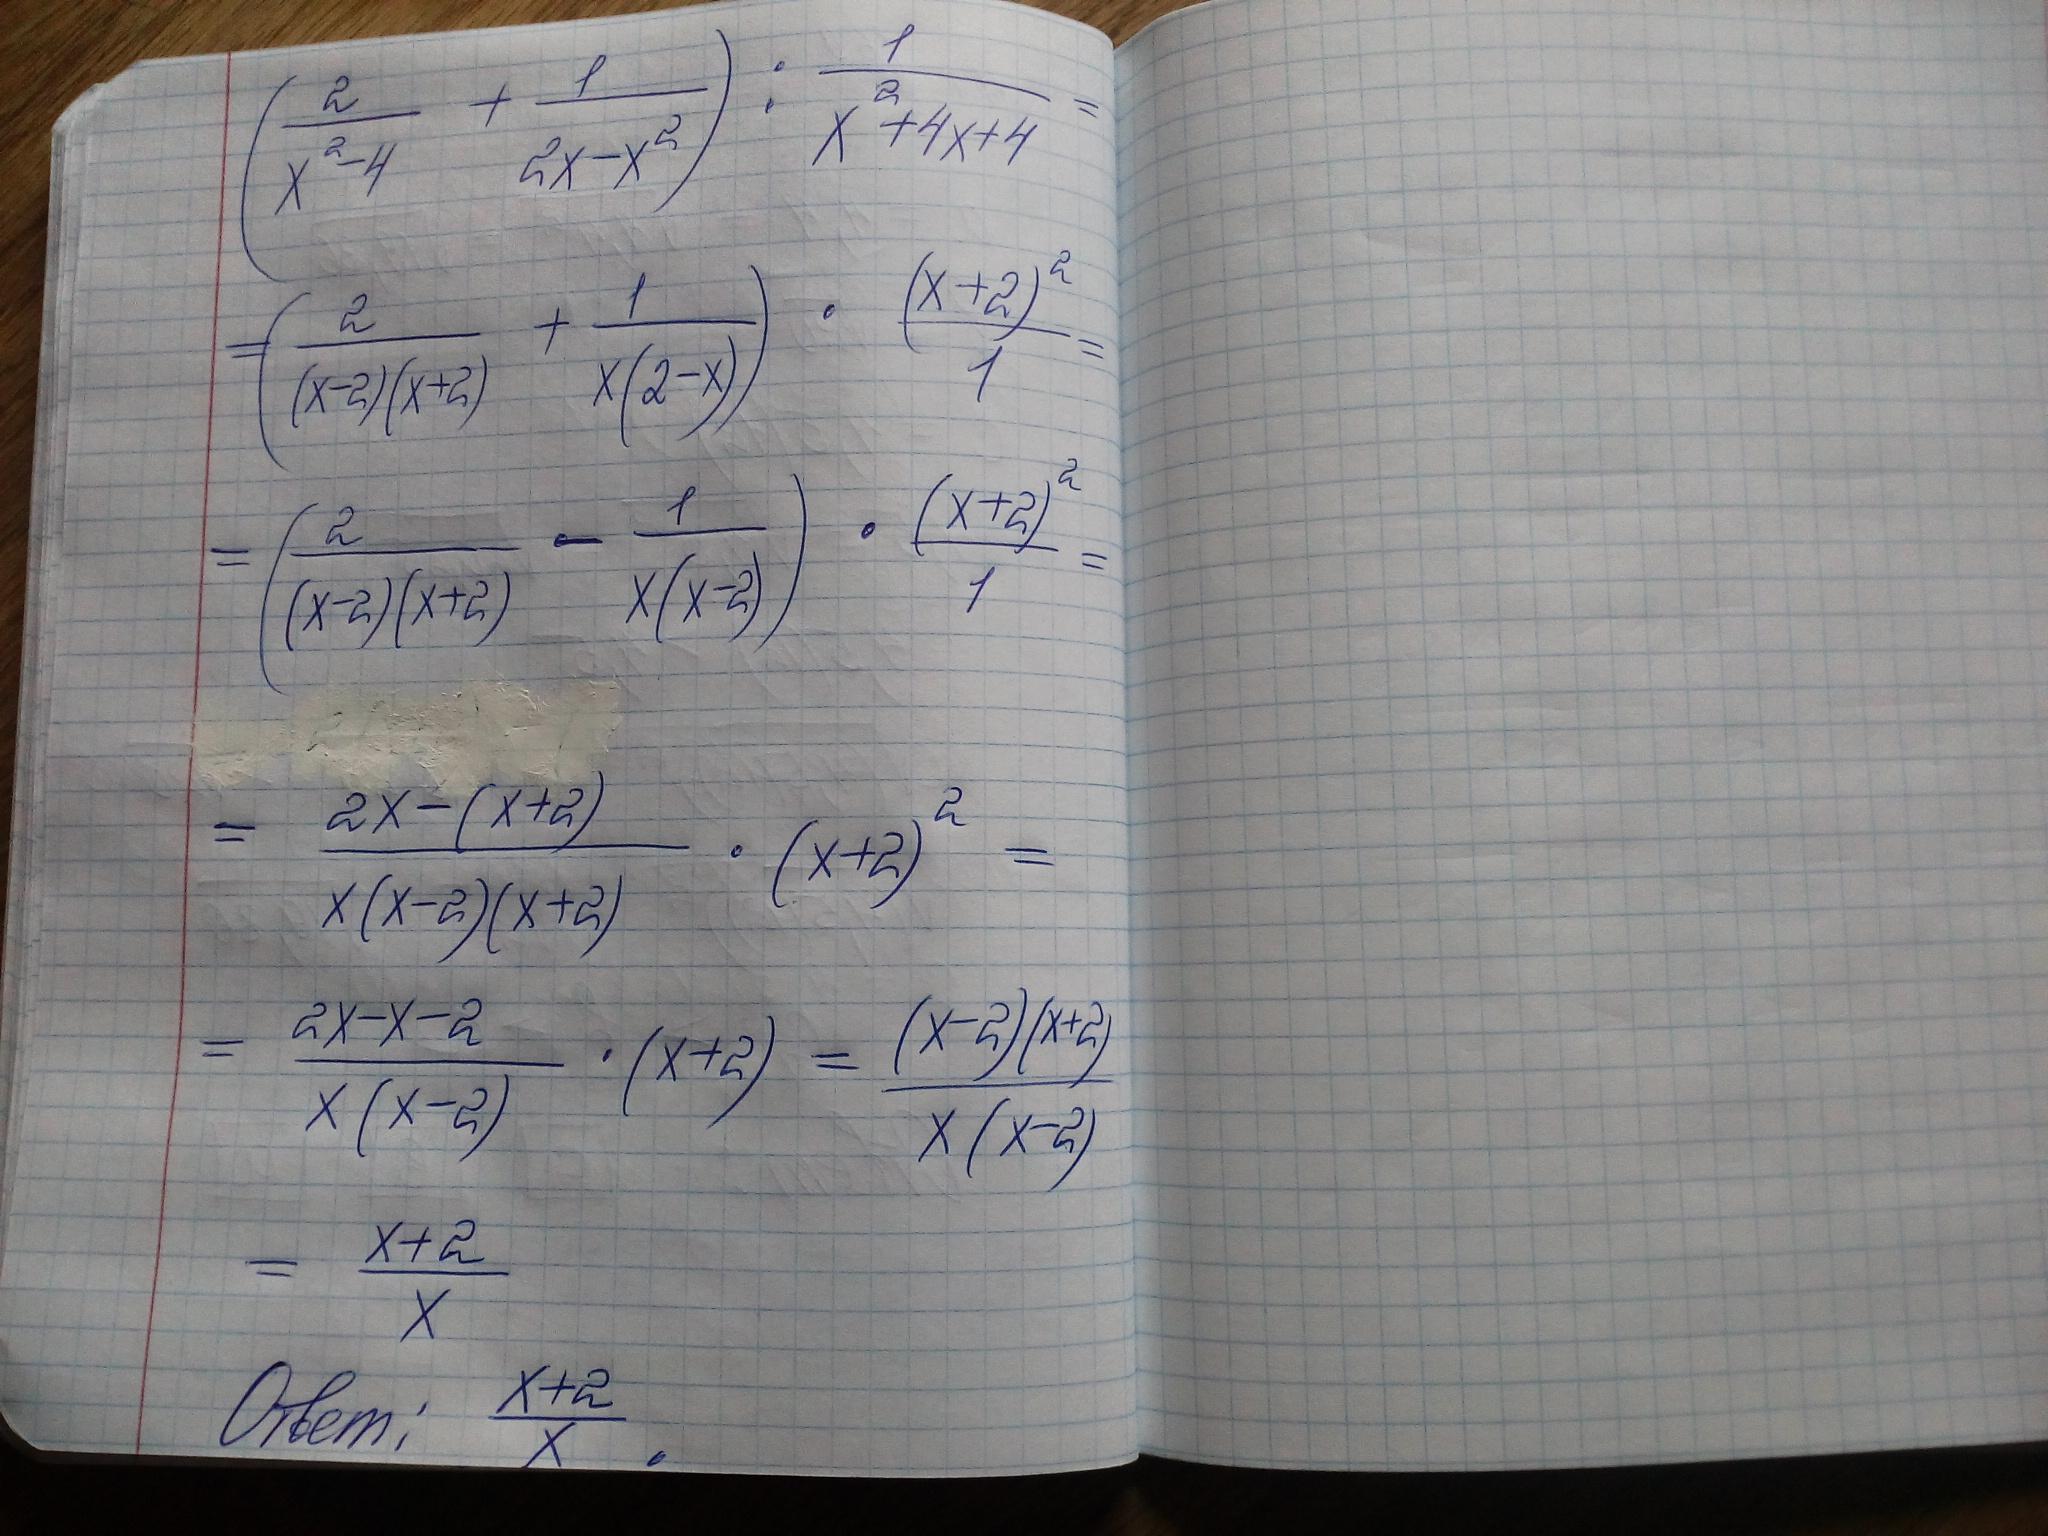 (2/(x²-4) + 1/(2x-x²)) : 1/(x²+4x+4) =
=(2/((x-2)(x+2)) + 1/(x(2-x))) · (x+2)²/1 =
=(2/((x-2)(x+2)) - 1/(x(x-2))) · (x+2)²/1 =
= (2x-(x+2))/(x(x-2)(x+2)) · (x+2)² =
= (2x-x-2)/(x(x-2)) · (x+2) = ((x-2)(x+2))/(x(x-2))
= (x+2)/x
Ответ: (x+2)/x.